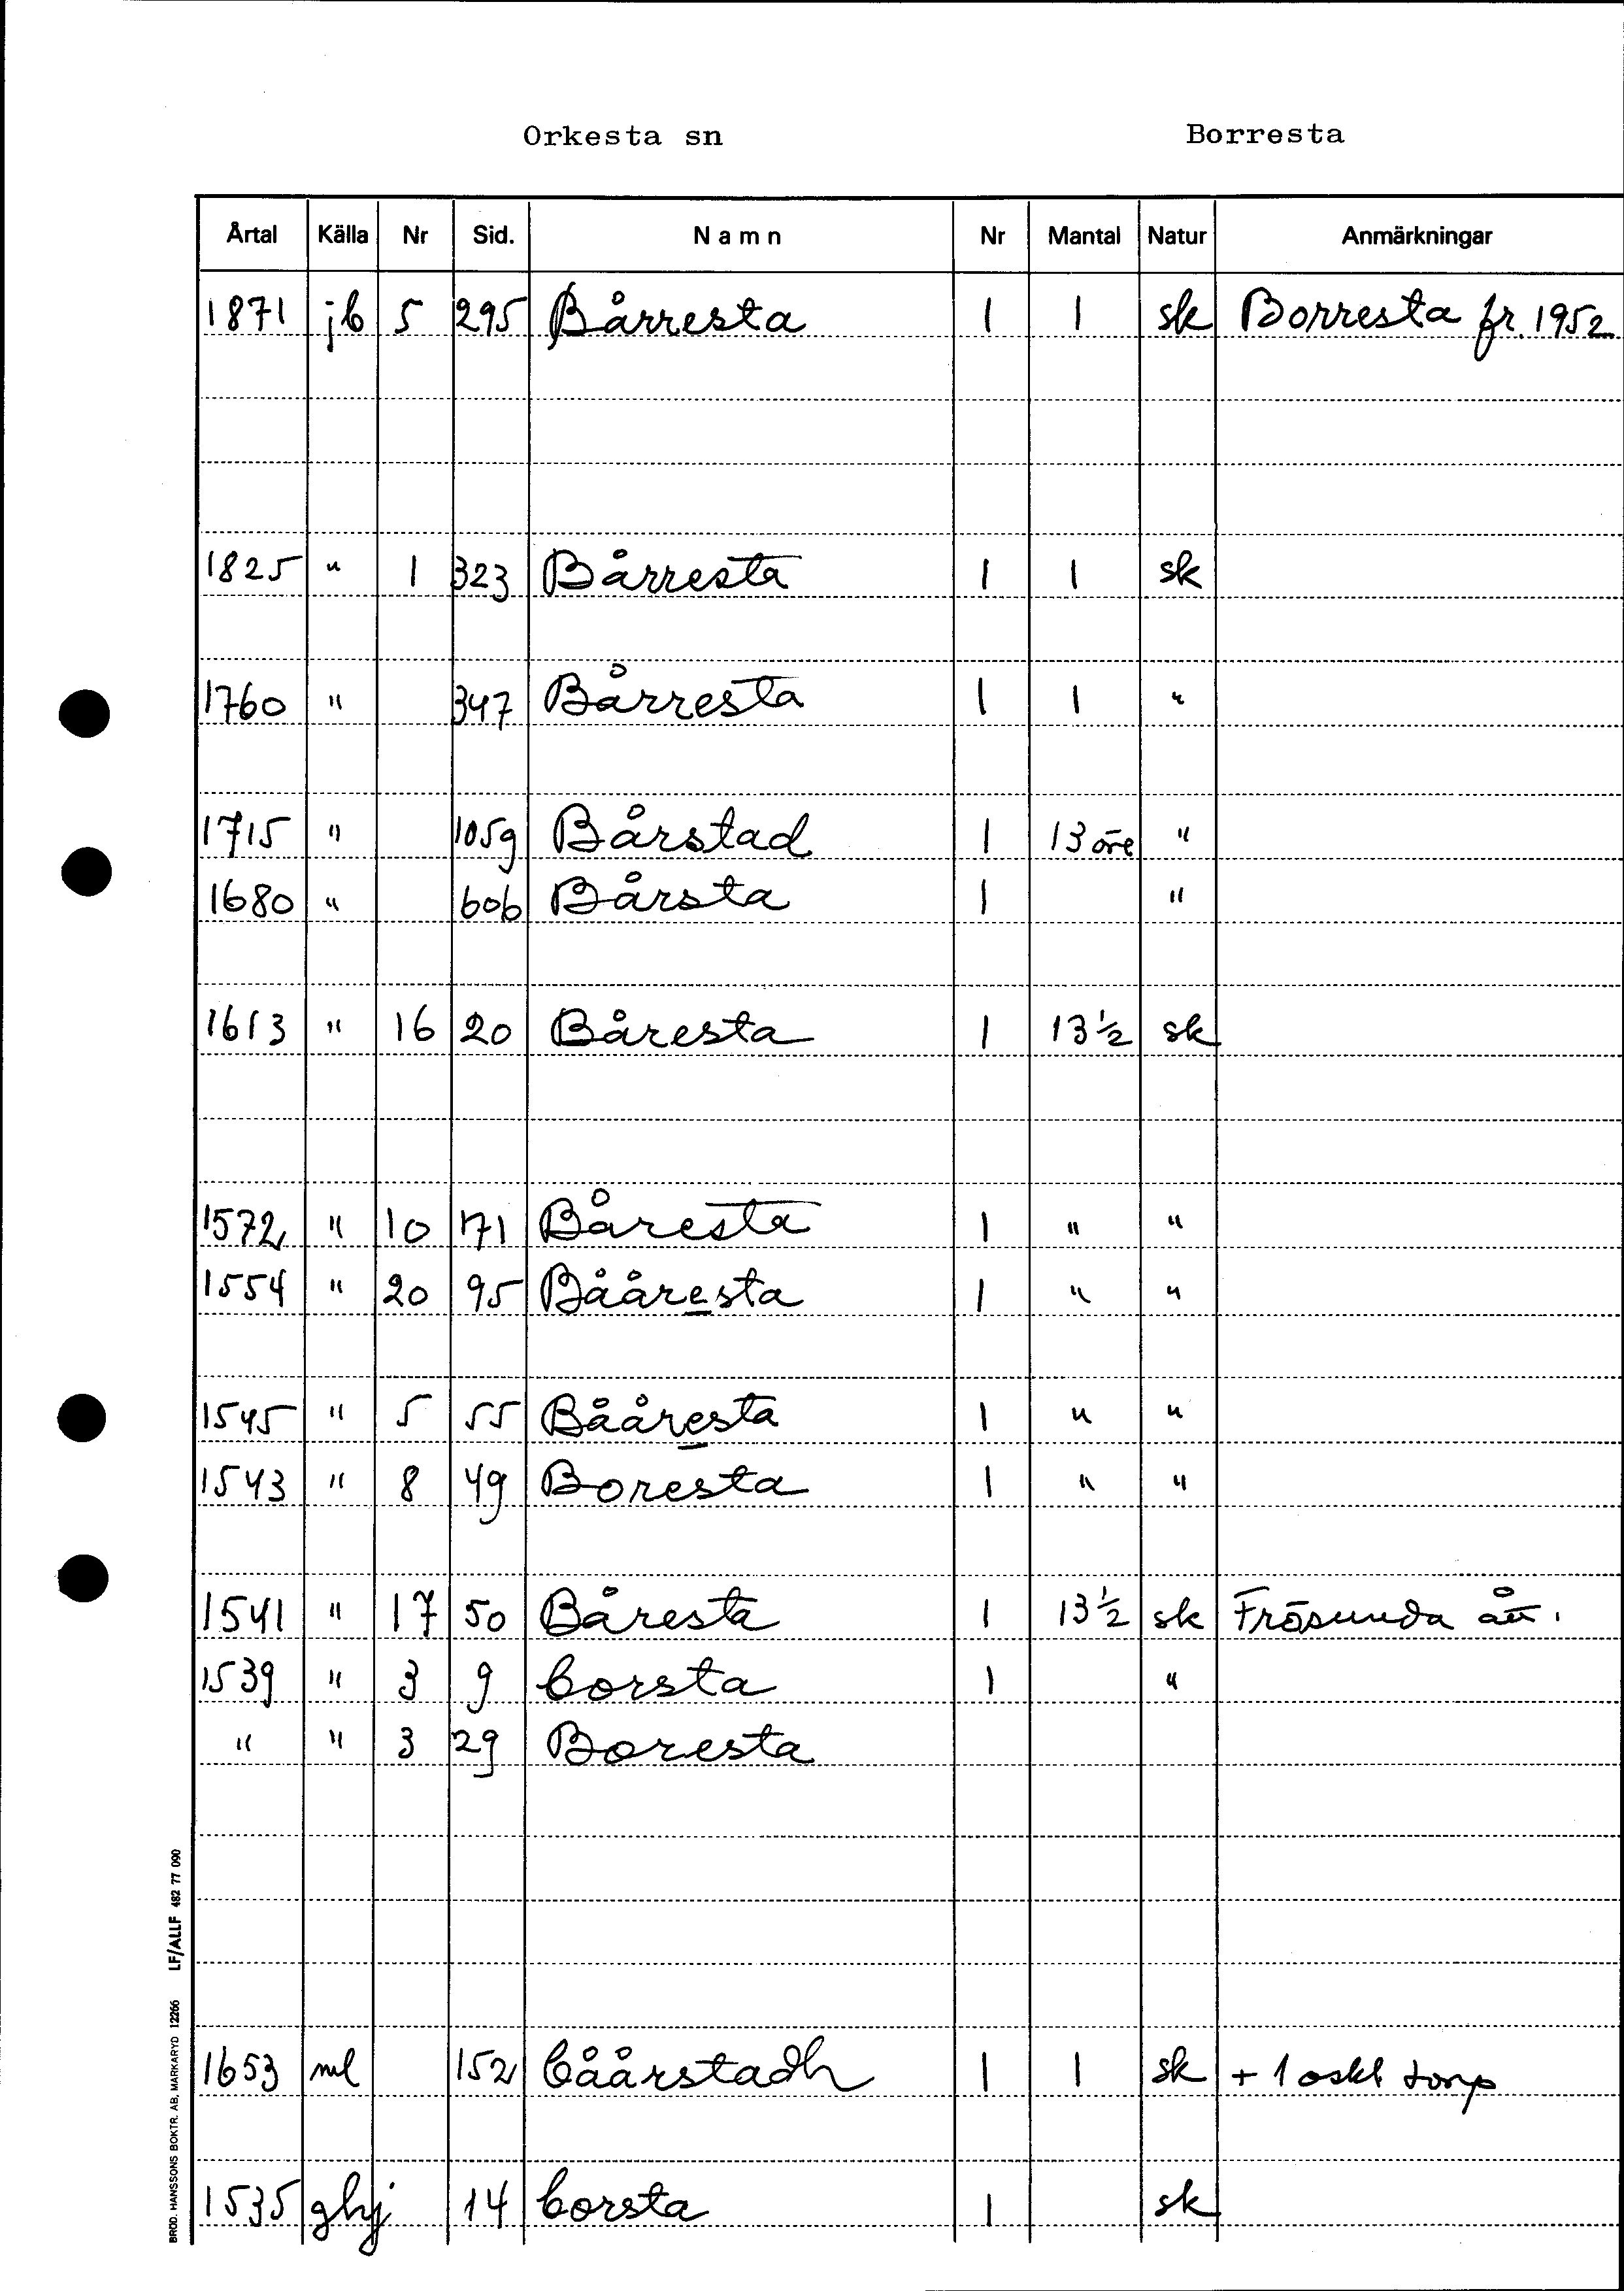 Orkesta sn Borresta
Årtal Källa Nr Sid. Namn Nr Mantal Natur Anmärkningar
1871 jb 5 295 Bårresta 1 1 sk Borresta fr. 1952
1825 " 1 323 Bårresta 1 1 sk
1760 " 347 Bårresta 1 1 "
1715 " 1059 Bårstad 1 13 öre "
1680 " 606 Bårsta 1 "
1613 " 16 20 Båresta 1 13½ sk
1572 " 10 171 Båresta 1 " "
1554 " 20 95 Bååresta 1 " "
1545 " 5 55 Bååresta 1 " "
1543 " 8 49 Boresta 1 " "
1541 " 17 50 Båresta 1 13½ sk Frösunda ått.
1539 " 3 9 borsta 1 "
" " 3 29 Boresta
1653 ml 152 båårstadh 1 1 sk + 1 oskt torp
1535 ghj 14 borsta 1 sk
BROD. HANSSONS BOKTR. AB. MARKARYD 12266 LF/ALLF 482 77 090